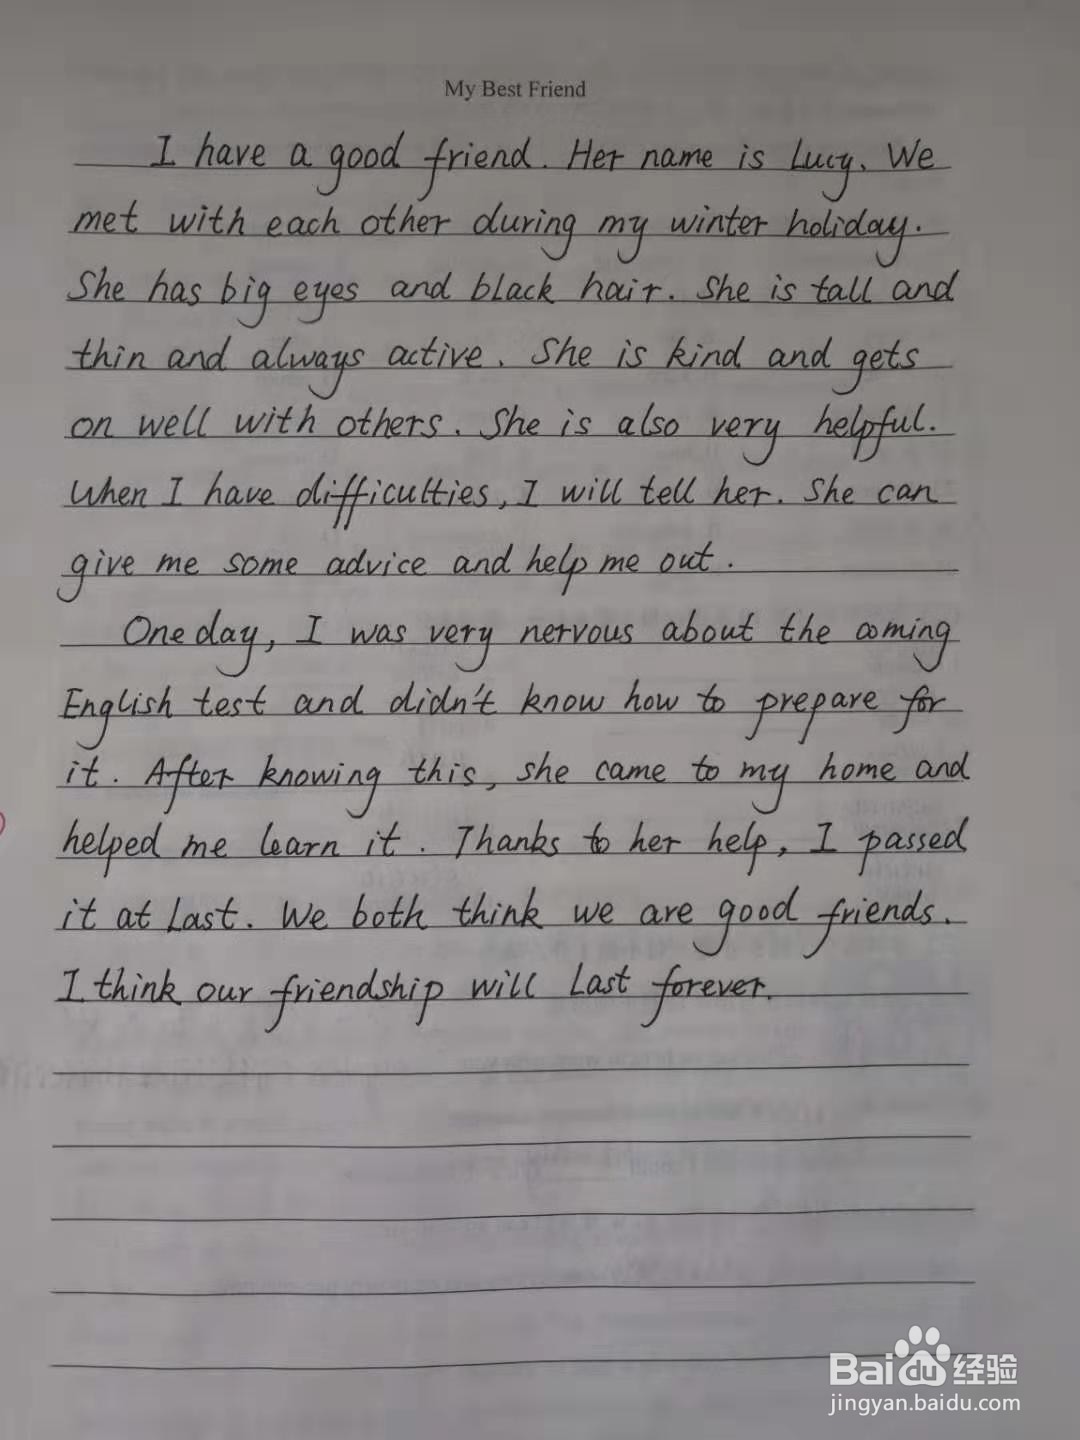 My Best Friend
I have a good friend. Her name is Lucy. We
met with each other during my winter holiday.
She has big eyes and black hair. She is tall and
thin and always active. She is kind and gets
on well with others. She is also very helpful.
When I have difficulties, I will tell her. She can
give me some advice and help me out.
One day, I was very nervous about the coming
English test and didn't know how to prepare for
it. After knowing this, she came to my home and
helped me learn it. Thanks to her help, I passed
it at last. We both think we are good friends.
I think our friendship will last forever.
Baidu经验
jingyan.baidu.com